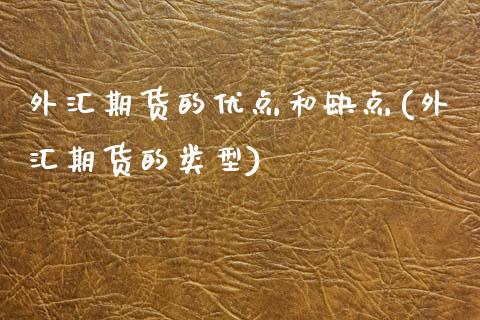 外汇期货的优点和缺点(外
汇期货的类型)